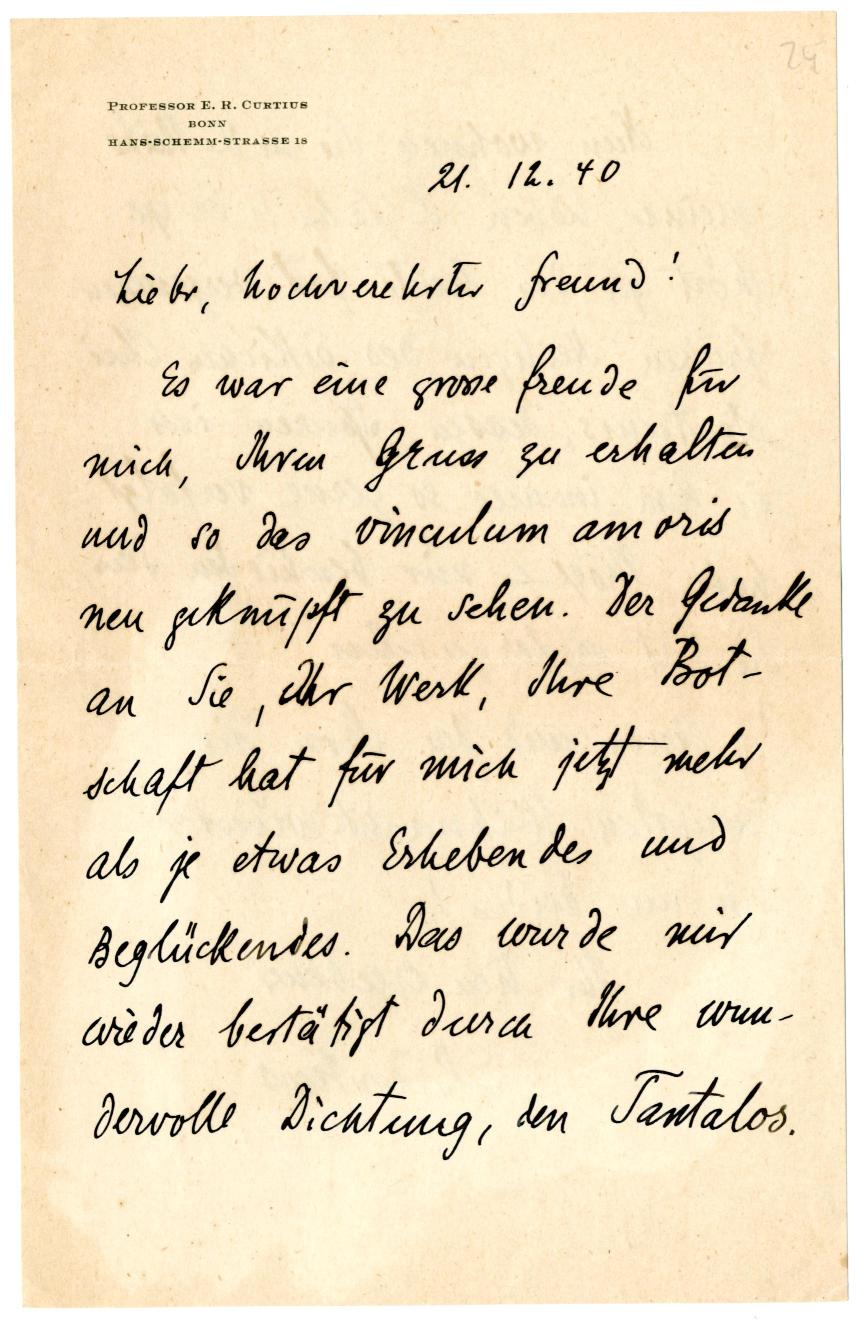 24
PROFESSOR E. R. CURTIUS
BONN
HANS-SCHEMM-STRASSE 18
21. 12. 40
Lieber, hochverehrter Freund!
Es war eine grosse Freude für
mich, Ihren Gruss zu erhalten
und so das vinculum amoris
neu geknüpft zu sehen. Der Gedanke
an Sie, Ihr Werk, Ihre Bot-
schaft hat für mich jetzt mehr
als je etwas Erhebendes und
Beglückendes. Das wurde mir
wieder bestätigt durch Ihre wun-
dervolle Dichtung, den Tantalos.